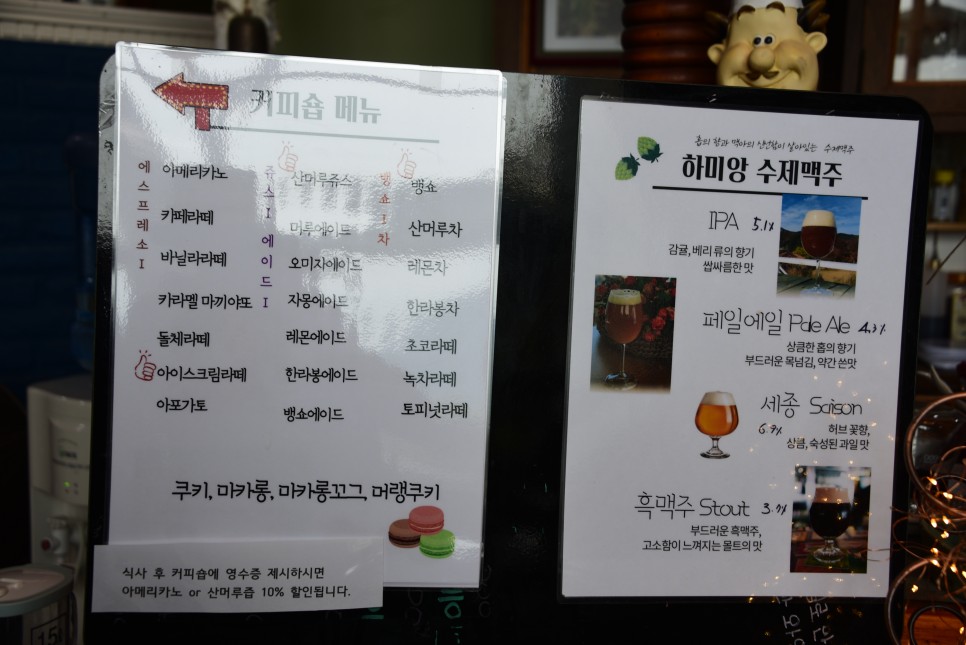 커피숍 메뉴
에스프레소I
아메리카노
카페라떼
바닐라라떼
카라멜 마끼야또
돌체라떼
아이스크림라떼
아포가토
쥬스I에이드I
산머루쥬스
머루에이드
오미자에이드
자몽에이드
레몬에이드
한라봉에이드
뱅쇼에이드
뱅쇼I차
뱅쇼
산머루차
레몬차
한라봉차
초코라떼
녹차라떼
토피넛라떼
쿠키, 마카롱, 마카롱꼬그, 머랭쿠키
식사 후 커피숍에 영수증 제시하시면
아메리카노 or 산머루즙 10% 할인됩니다.
홉의 향과 맥아의 신선함이 살아있는 수제맥주
하미앙 수제맥주
IPA 5.1%
감귤, 베리 류의 향기
쌉싸름한 맛
페일에일 Pale Ale 4.3%
상큼한 홉의 향기
부드러운 목넘김, 약간 쓴맛
세종 Saison
6.9%
허브 꽃향,
상큼, 숙성된 과일 맛
흑맥주 Stout
부드러운 흑맥주,
고소함이 느껴지는 몰트의 맛